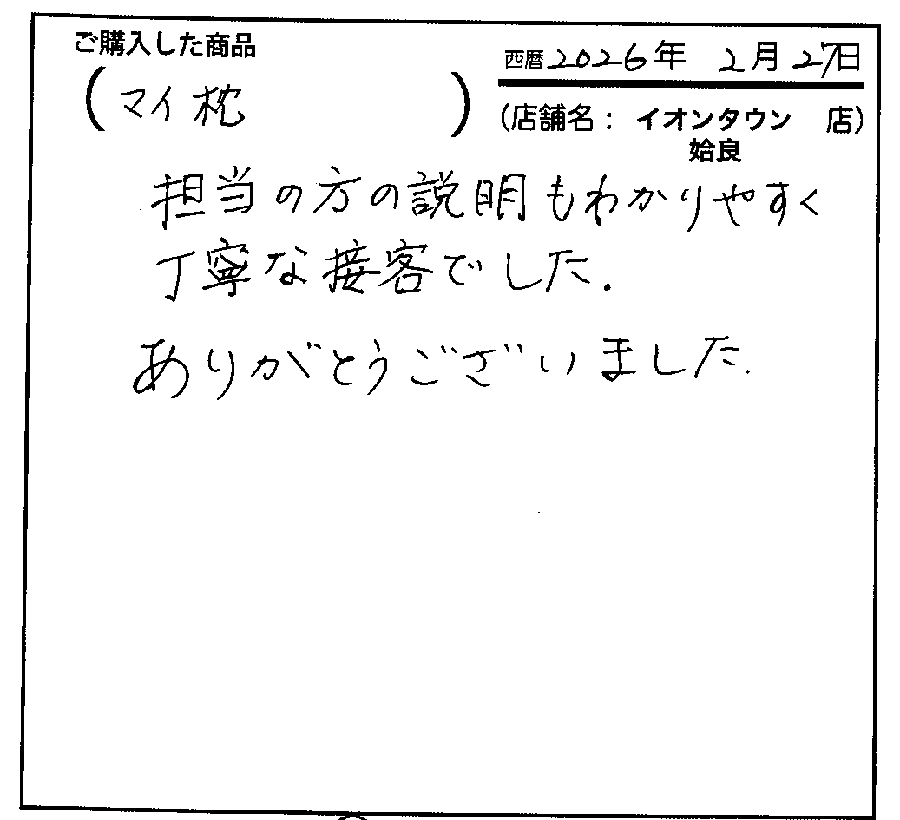 ご購入した商品
(マイ枕)
西暦2026年 2月27日
(店舗名：イオンタウン 店)
姶良
担当の方の説明もわかりやすく
丁寧な接客でした.
ありがとうございました.